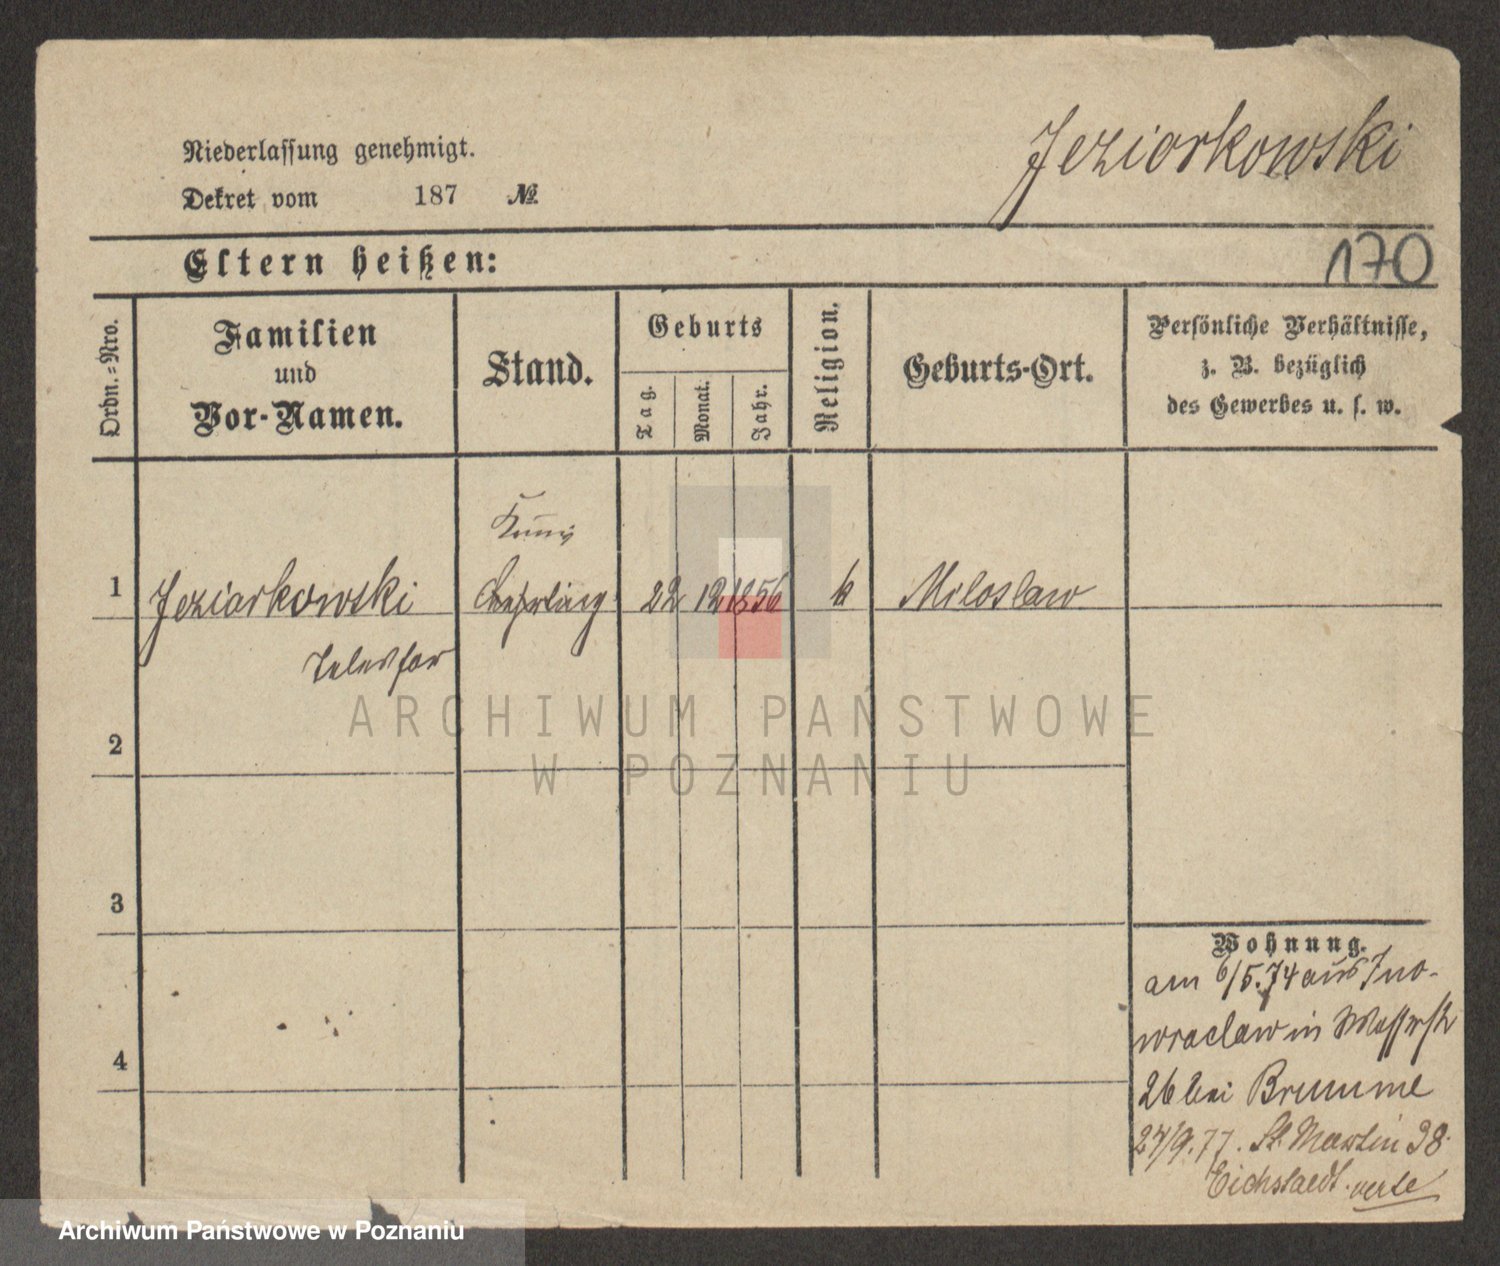 Niederlassung genehmigt.
Dekret vom 187 №
Jeziorkowski
170
Eltern heißen:
Ordn.=Nro.
Familien
und
Vor-Namen.
Stand.
Geburts
Tag.
Monat.
Jahr.
Religion.
Geburts-Ort.
Persönliche Verhältnisse,
z. B. bezüglich
des Gewerbes u. s. w.
1 Jeziorkowski Lehrling 22 12 1856 k Miloslaw
Telesfor
2
3
4
Wohnung.
am 6/5.74 aus Ino-
wraclaw in
26 bei Brumme
27/9.77. St. Martin 38
Eichstaedt. verte
ARCHIWUM PAŃSTWOWE
W POZNANIU
Archiwum Państwowe w Poznaniu